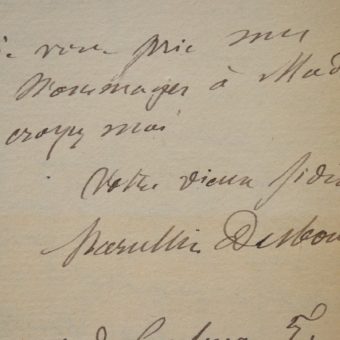 vous prie mes
hommages à Mad
croyez moi
Votre vieux fidè
Marcellin Desbou
5.